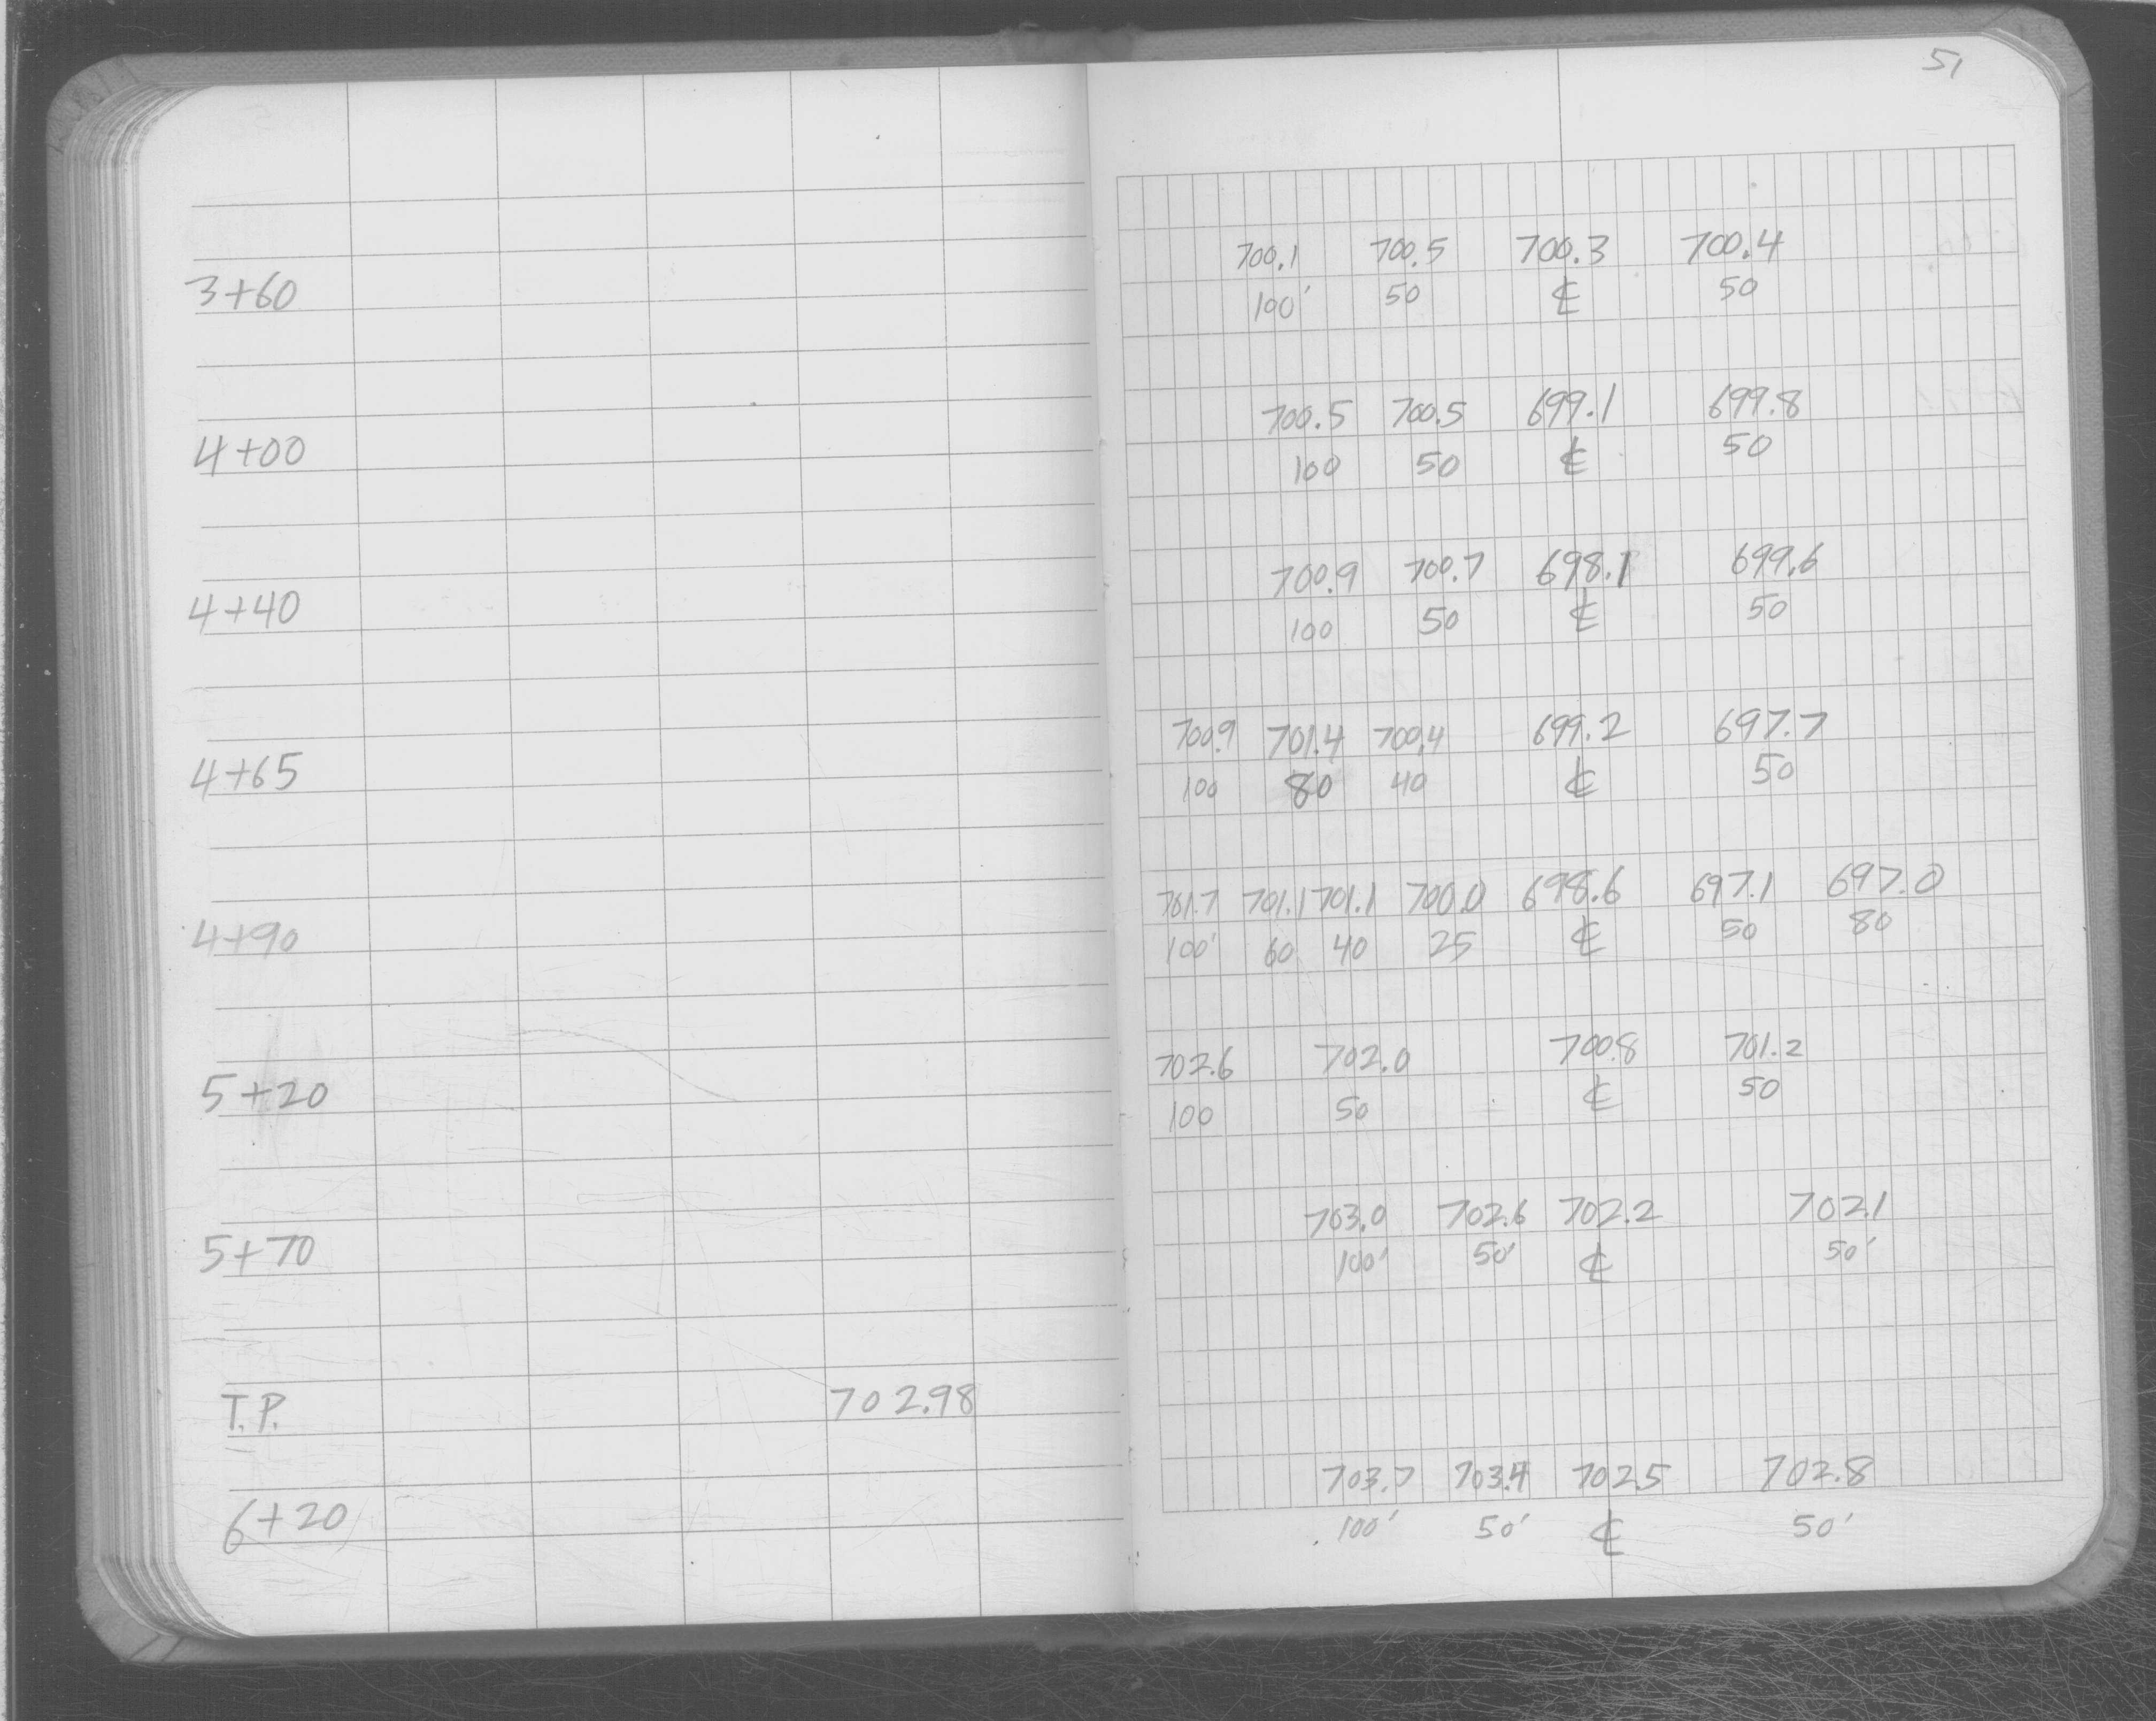 51
700.1 700.5 700.3 700.4
3+60 100' 50 ℄ 50
700.5 700.5 699.1 699.8
4+00 100 50 ℄ 50
700.9 700.7 698.1 699.6
4+40 100 50 ℄ 50
700.9 701.4 700.4 699.2 697.7
4+65 100 80 40 ℄ 50
701.7 701.1 701.1 700.0 698.6 697.1 697.0
4+90 100' 60 40 25 ℄ 50 80
702.6 702.0 700.8 701.2
5+20 100 50 ℄ 50
703.0 702.6 702.2 702.1
5+70 100' 50' ℄ 50'
T.P. 702.98
703.7 703.4 702.5 702.8
6+20 100' 50' ℄ 50'